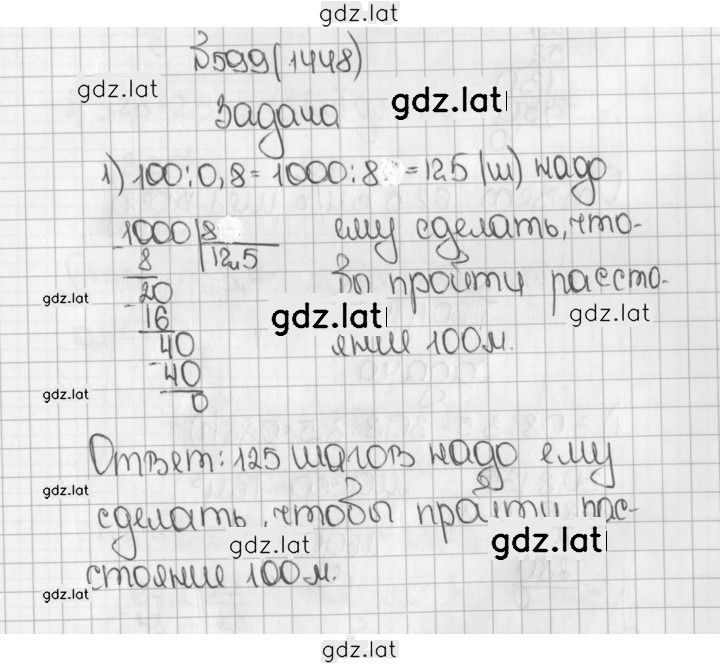 gdz.lat
№599(1448)
gdz.lat
gdz.lat
Задача
1) 100:0,8=1000:8 =125 (ш) надо
1000 8
- 8 12,5
ему сделать, что-
бы пройти рассто-
20
gdz.lat
- 16
gdz.lat
gdz.lat
яние 100м.
40
- 40
gdz.lat
0
Ответ: 125 шагов надо ему
gdz.lat
сделать, чтобы пройти рас-
gdz.lat
gdz.lat
стояние 100м.
gdz.lat
gdz.lat